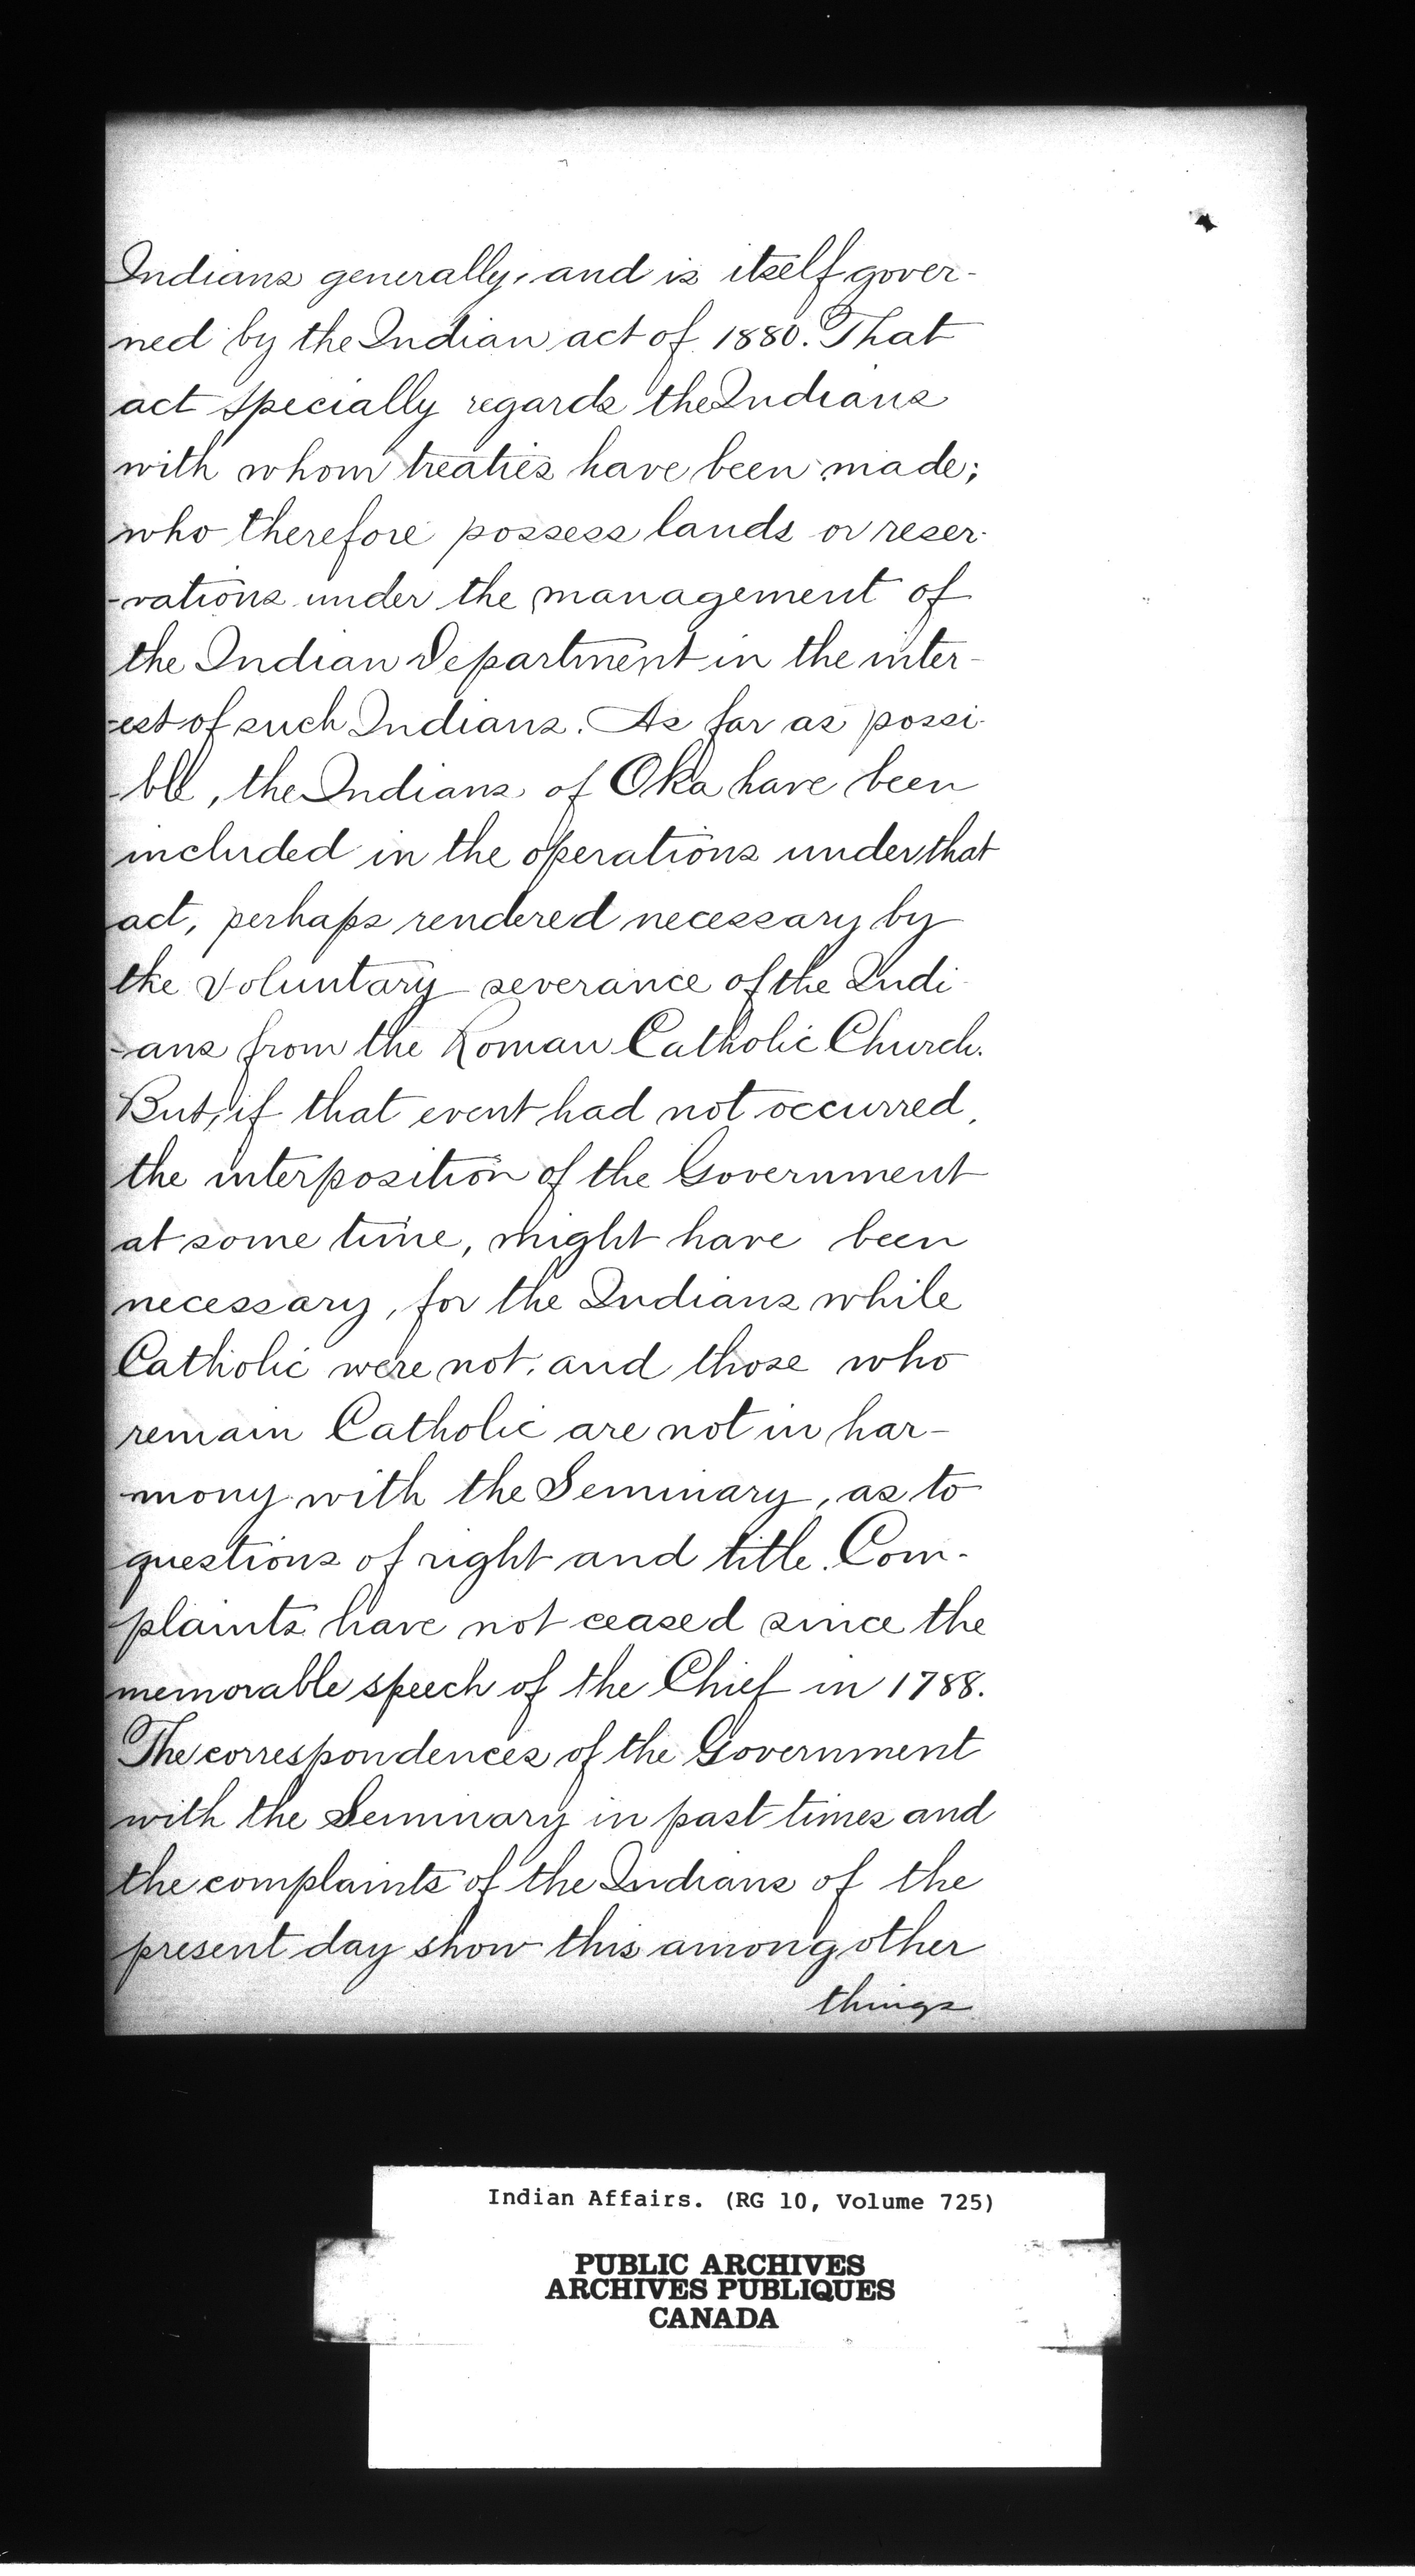 Indians generally, and is itself gover-
ned by the Indian act of 1880. That
act specially regards the Indians
with whom treaties have been made;
who therefore possess lands or reser-
-vations under the management of
the Indian Department in the inter-
-est of such Indians. As far as possi-
-ble, the Indians of Oka have been
included in the operations under that
act, perhaps rendered necessary by
the voluntary severance of the Indi-
-ans from the Roman Catholic Church.
But, if that event had not occurred,
the interposition of the Government
at some time, might have been
necessary, for the Indians while
Catholic were not, and those who
remain Catholic are not in har-
mony with the Seminary, as to
questions of right and title. Com-
plaints have not ceased since the
memorable speech of the Chief in 1788.
The correspondences of the Government
with the Seminary in past times and
the complaints of the Indians of the
present day show this among other
things
Indian Affairs. (RG 10, Volume 725)
PUBLIC ARCHIVES
ARCHIVES PUBLIQUES
CANADA